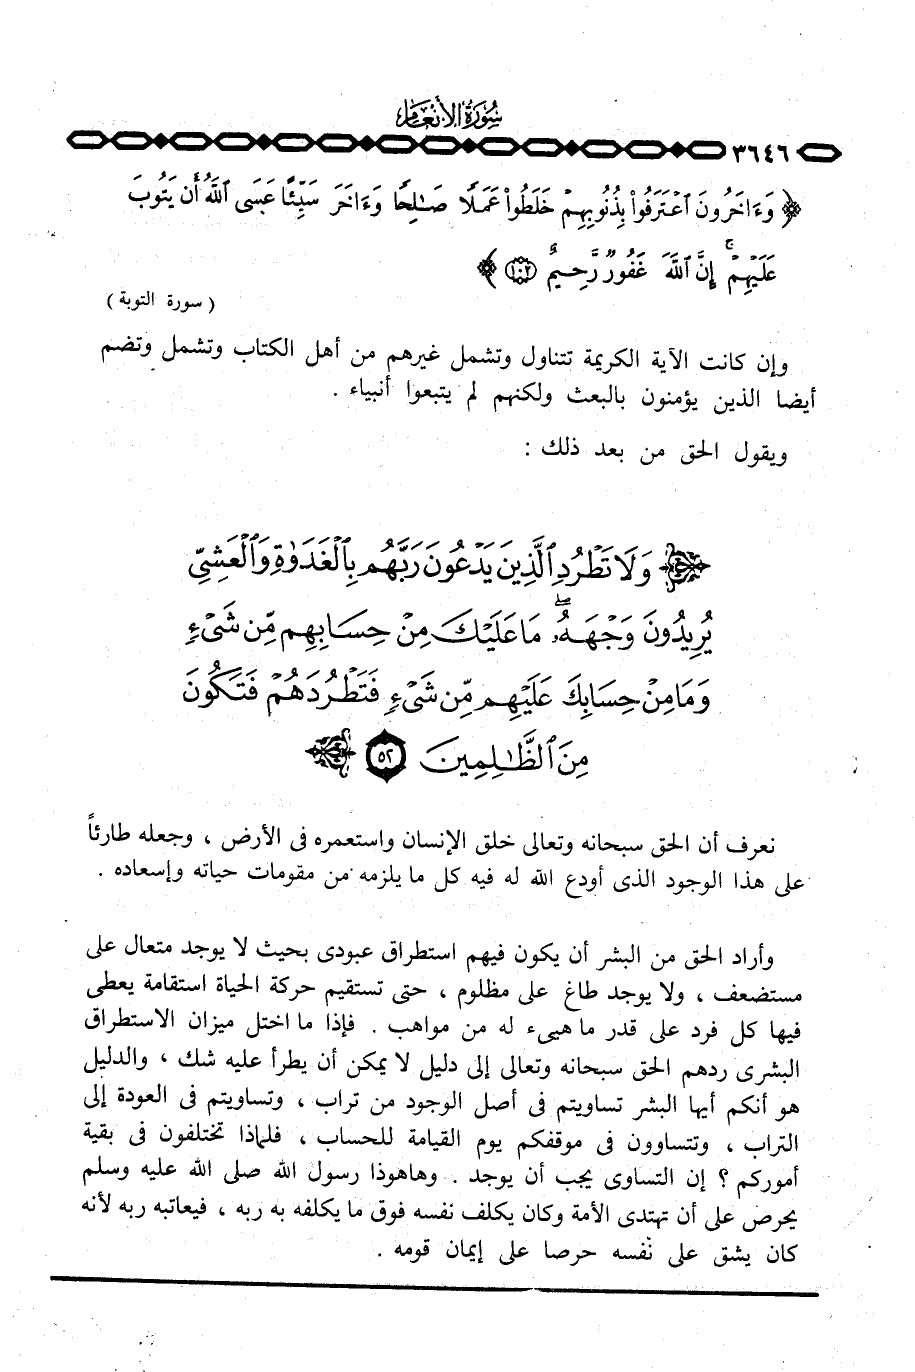 سورة الأنعام
٣٦٤٦
﴿ وَءَاخَرُونَ ٱعْتَرَفُوا۟ بِذُنُوبِهِمْ خَلَطُوا۟ عَمَلًا صَـٰلِحًا وَءَاخَرَ سَيِّئًا عَسَى ٱللَّهُ أَن يَتُوبَ
عَلَيْهِمْ ۚ إِنَّ ٱللَّهَ غَفُورٌ رَّحِيمٌ ١٠٢ ﴾
( سورة التوبة )
وإن كانت الآية الكريمة تتناول وتشمل غيرهم من أهل الكتاب وتشمل وتضم
أيضا الذين يؤمنون بالبعث ولكنهم لم يتبعوا أنبياء .
ويقول الحق من بعد ذلك :
وَلَا تَطْرُدِ ٱلَّذِينَ يَدْعُونَ رَبَّهُم بِٱلْغَدَوٰةِ وَٱلْعَشِىِّ
يُرِيدُونَ وَجْهَهُۥ ۖ مَا عَلَيْكَ مِنْ حِسَابِهِم مِّن شَىْءٍ
وَمَا مِنْ حِسَابِكَ عَلَيْهِم مِّن شَىْءٍ فَتَطْرُدَهُمْ فَتَكُونَ
مِنَ ٱلظَّـٰلِمِينَ ٥٢
نعرف أن الحق سبحانه وتعالى خلق الإنسان واستعمره فى الأرض ، وجعله طارئاً
على هذا الوجود الذى أودع الله له فيه كل ما يلزمه من مقومات حياته وإسعاده .
وأراد الحق من البشر أن يكون فيهم استطراق عبودى بحيث لا يوجد متعال على
مستضعف ، ولا يوجد طاغ على مظلوم ، حتى تستقيم حركة الحياة استقامة يعطى
فيها كل فرد على قدر ما هيىء له من مواهب . فإذا ما اختل ميزان الاستطراق
البشرى ردهم الحق سبحانه وتعالى إلى دليل لا يمكن أن يطرأ عليه شك ، والدليل
هو أنكم أيها البشر تساويتم فى أصل الوجود من تراب ، وتساويتم فى العودة إلى
التراب ، وتتساوون فى موقفكم يوم القيامة للحساب ، فلماذا تختلفون فى بقية
أموركم ؟ إن التساوى يجب أن يوجد . وهاهوذا رسول الله صلى الله عليه وسلم
يحرص على أن تهتدى الأمة وكان يكلف نفسه فوق ما يكلفه به ربه ، فيعاتبه ربه لأنه
كان يشق على نفسه حرصا على إيمان قومه .